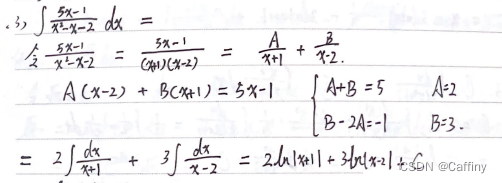 (3) ∫ \frac{5x-1}{x²-x-2} dx =
令 \frac{5x-1}{x²-x-2} = \frac{5x-1}{(x+1)(x-2)} = \frac{A}{x+1} + \frac{B}{x-2}.
A(x-2) + B(x+1) = 5x-1 { A+B=5 A=2
B-2A=-1 B=3.
= 2∫ \frac{dx}{x+1} + 3∫ \frac{dx}{x-2} = 2ln|x+1| + 3ln|x-2| + C
CSDN @Caffiny